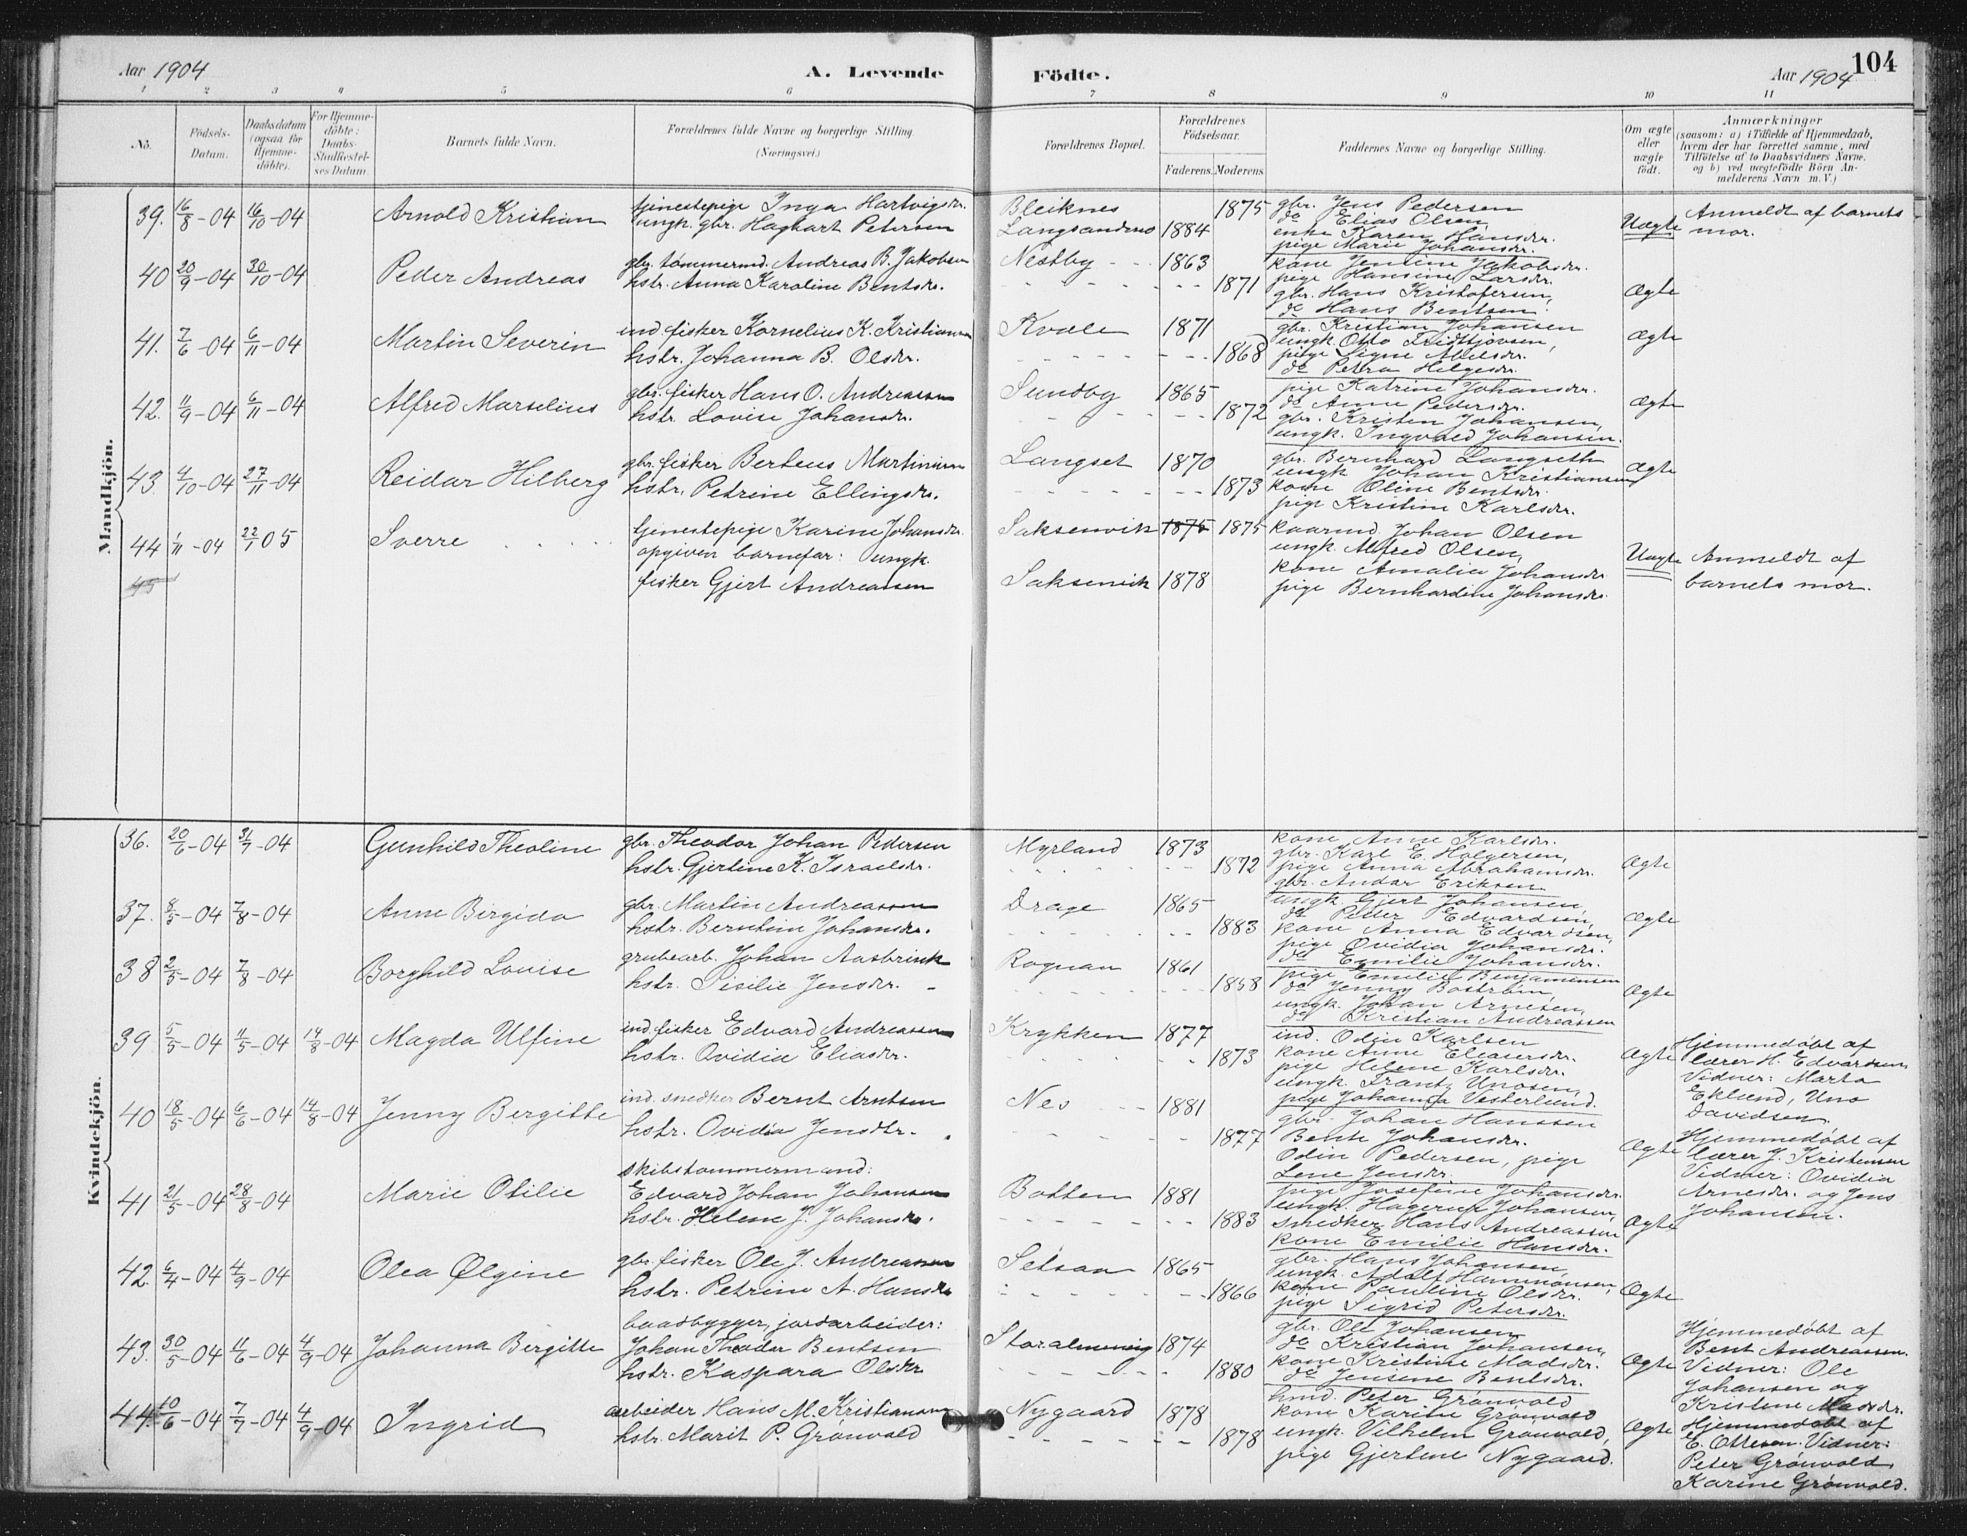 Aar 1904
A. Levende Födte.
Aar 1904
104
1 2 3 4 5 6 7 8 9 10 11
No.
Födsels-Datum.
Daabsdatum (ogsaa for Hjemme-döbte).
For Hjemme-döbte: Daabs-Stadfæstel-ses Datum.
Barnets fulde Navn.
Forældrenes fulde Navne og borgerlige Stilling (Næringsvei.)
Forældrenes Bopæl.
Forældrenes Födselsaar.
Faderens. Moderens
Faddernes Navne og borgerlige Stilling.
Om ægte eller uægte födt.
Anmærkninger (saasom: a) i Tilfælde af Hjemmedaab, hvem der har forrettet samme, med Tilföielse af to Daabsvidners Navne, og b) ved uægtefödte Börn An-melderens Navn m. V.)
Mandkjön.
39. 16/8-04 16/10-04 Arnold Kristian
tjenestepige Inga Hartvigsdr.
ungk. gbr. Haghart Petersen
Bleiknes 1875
Langsandmo 1884
gbr. Jens Pedersen
do Elias Olsen
enke Karen Hansdr.
pige Marie Johansdr.
Uægte
Anmeldt af barnets
mor.
40 20/9-04 30/10-04 Peder Andreas
gbr. tømmermd. Andreas B. Jakobsen
hstr. Anna Karoline Bentsdr.
Nestby 1863
1871
kone Jensine Jakobsdr.
pige Hansine Larsdr.
gbr. Hans Kristofersen,
do Hans Bentsen.
Ægte
41. 7/6-04 6/11-04 Martin Severin
ind. fisker Kornelius K. Kristiansen
hstr. Johanna B. Olsdr.
Kvæle 1871
1868
gbr. Kristian Johansen
ungk. Otto Fridtjovsen,
pige Signe Abelsdr.
do Petra Helgesdr.
Ægte
42. 11/9-04 6/11-04 Alfred Marselius
gbr. fisker Hans O. Andreassen
hstr. Lovise Johansdr.
Sundby 1865
1872
pige Katrine Johansdr.
do Anne Pedersdr.
gbr. Kristen Johansen,
ungk. Ingvald Johansen.
Ægte
43. 4/10-04 27/11-04 Reidar Hilberg
gbr. fisker Berteus Martinsen
hstr. Petrine Ellingsdr.
Langset 1870
1873
gbr. Bernhard Langseth
ungk Johan Kristiansen
kone Oline Bentsdr.
pige Kristine Karlsdr.
Ægte
44 1/11-04 22/1 05 Sverre
tjenestepige Karine Johansdr.
opgiven barnefar: ungk.
fisker Gjert Andreassen
Saksenvik 1875 1875
Saksenvik 1878
kaarmd. Johan Olsen
ungk. Alfred Olsen,
kone Amalia Johansdr
pige Bernhardine Johansdr.
Uægte
Anmeldt af
barnets mor.
45
Kvindekjön.
36. 20/6-04 31/7-04 Gunhild Theoline
gbr. Theodor Johan Pedersen
hstr. Gjertine K. Israelsdr.
Myrland 1873
1872
kone Anne Karlsdr.
gbr. Karl E. Holgersen,
pige Anna Abrahamsdr.
gbr. Andor Eriksen
Ægte
37. 8/5-04 7/8-04 Anne Birgida
gbr. Martin Andreassen
hstr. Berntine Johansdr.
Drage 1865
1883
ungk Gjert Johansen,
do Peder Edvardsen,
kone Anna Edvardsen,
pige Ovidia Johansdr.
do Emilie Johansdr.
Ægte
38 2/5-04 7/8-04 Borghild Louise
grubearb. Johan Aasbrink
hstr. Sisilie Jensdr.
Rognan 1861
1858
pige Emilie Benjaminsen
do Jenny Boström,
ungk. Johan Arnesen,
do Kristian Andreassen
Ægte
39 5/5-04 11/5-04 14/8-04 Magda Ulfine
ind. fisker Edvard Andreassen
hstr. Ovidia Eliasdr.
Krykken 1877
1873
ind. Odin Karlsen
kone Anne Eleasersdr.
pige Helene Karlsdr.
ungk. Frantz Unosen,
pige Johanna Vesterlund.
Ægte
Hjemmedøbt af
lærer H. Edvardsen,
Vidner: Marta
Eklund, Uno
Davidsen
40 18/5-04 6/6-04 14/8-04 Jenny Bergitte
ind. snedker Bernt Arntsen
hstr. Ovidia Jensdtr.
Nes 1881
1877
gbr Johan Hanssen
Bente Johansdr.
Odin Pedersen, pige
Lene Jensdr.
Ægte
Hjemmedøbt af
lærer J. Kristensen
Vidner: Ovidia
Arnesdr. og Jens
Johansen.
41 21/5-04 28/8-04 Marie Otilie
skibstømmermand:
Edvard Johan Johansen
hstr. Helene J. Johansdr.
Botten 1881
1883
pige Josefine Johansdr.
ungk. Hagerup Johansen,
smedker Hans Andreassen
kone Emilie Hansdr.
Ægte
42. 6/4-04 4/9-04 Olea Ølgine
gbr. fisker Ole J. Andreassen
hstr. Petrine A. Hansdr
Setsaa 1865
1866
gbr. Hans Johansen,
ungk. Adolf Hammonsen,
kone Pauline Olsdr.
pige Sigrid Petersdr.
Ægte
43. 30/5-04 11/6-04 4/9-04 Johanna Bergitte
baadbygger, jordarbeider:
Johan Theodor Bentsen
hstr. Kaspara Olsdr
Storalmening 1874
1880
gbr. Ole Johansen
do Kristian Johansen,
kone Kristine Madsdr.
do Jensine Bentsdr.
Ægte
Hjemmedøbt af
Bent Andreassen.
Vidner: Ole
Johansen og
Kristine Madsdr.
44. 10/6-04 7/7-04 4/9-04 Ingrid
arbeider Hans M. Kristiansen
hstr. Marit P. Grønvold
Nygaard 1878
1878
hmd. Peter Grønvold
kone Karine Grønvold
ungk. Vilhelm Grønvold,
pige Gjertine Nygaard.
Ægte
Hjemmedøbt af
E. Ottesen. Vidner:
Peter Grønvold,
Karine Grønvold.